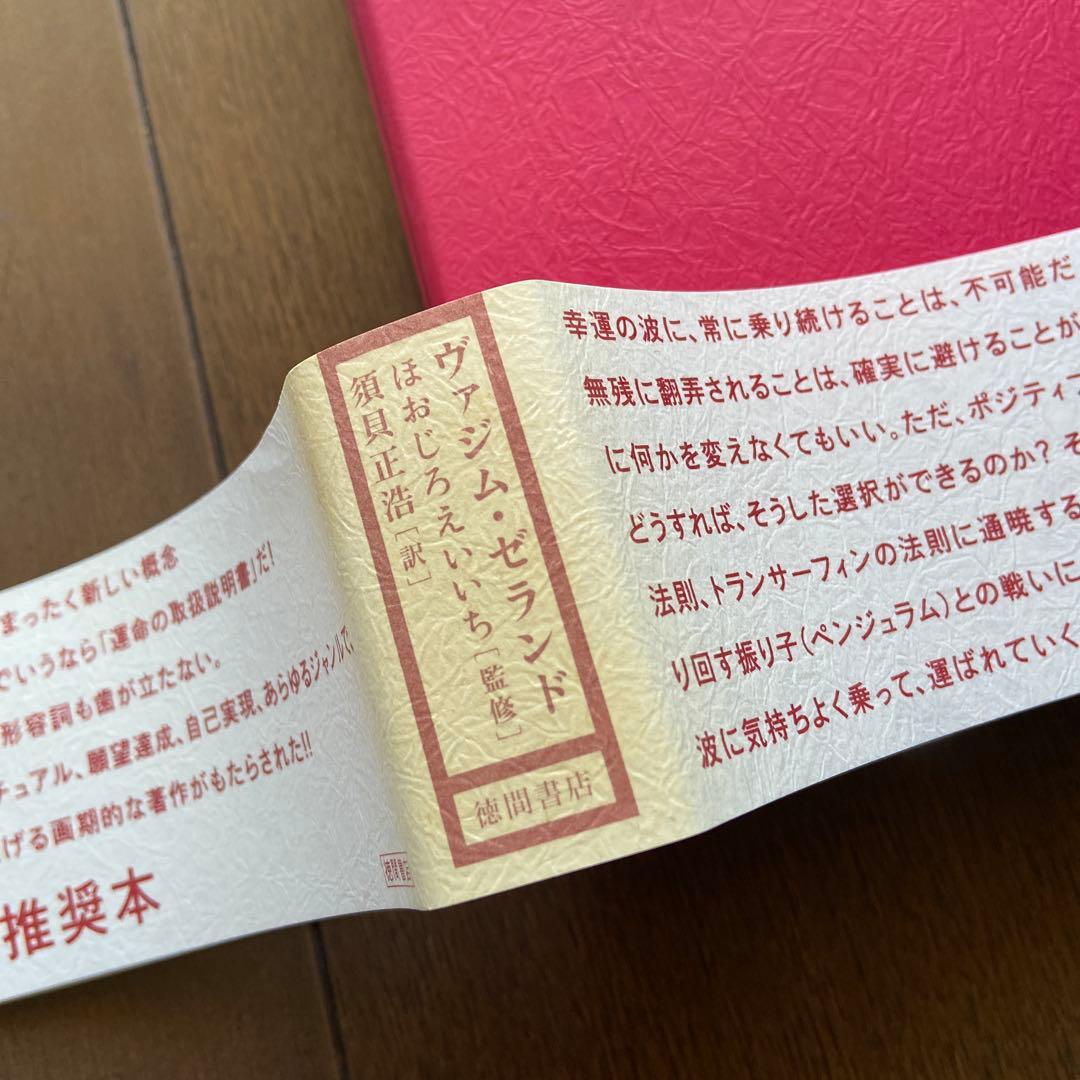 まったく新しい概念
でいうなら「運命の取扱説明書」だ!
形容詞も歯が立たない。
チュアル、願望達成、自己実現、あらゆるジャンルで、
げる画期的な著作がもたらされた!!
推奨本
徳間書店
ヴァジム・ゼランド
ほおじろえいいち[監修]
須貝正浩[訳]
徳間書店
幸運の波に、常に乗り続けることは、不可能だ
無残に翻弄されることは、確実に避けることが
に何かを変えなくてもいい。ただ、ポジティブ
どうすれば、そうした選択ができるのか? そ
法則、トランサーフィンの法則に通暁する
り回す振り子(ペンジュラム)との戦いに
波に気持ちよく乗って、運ばれていく